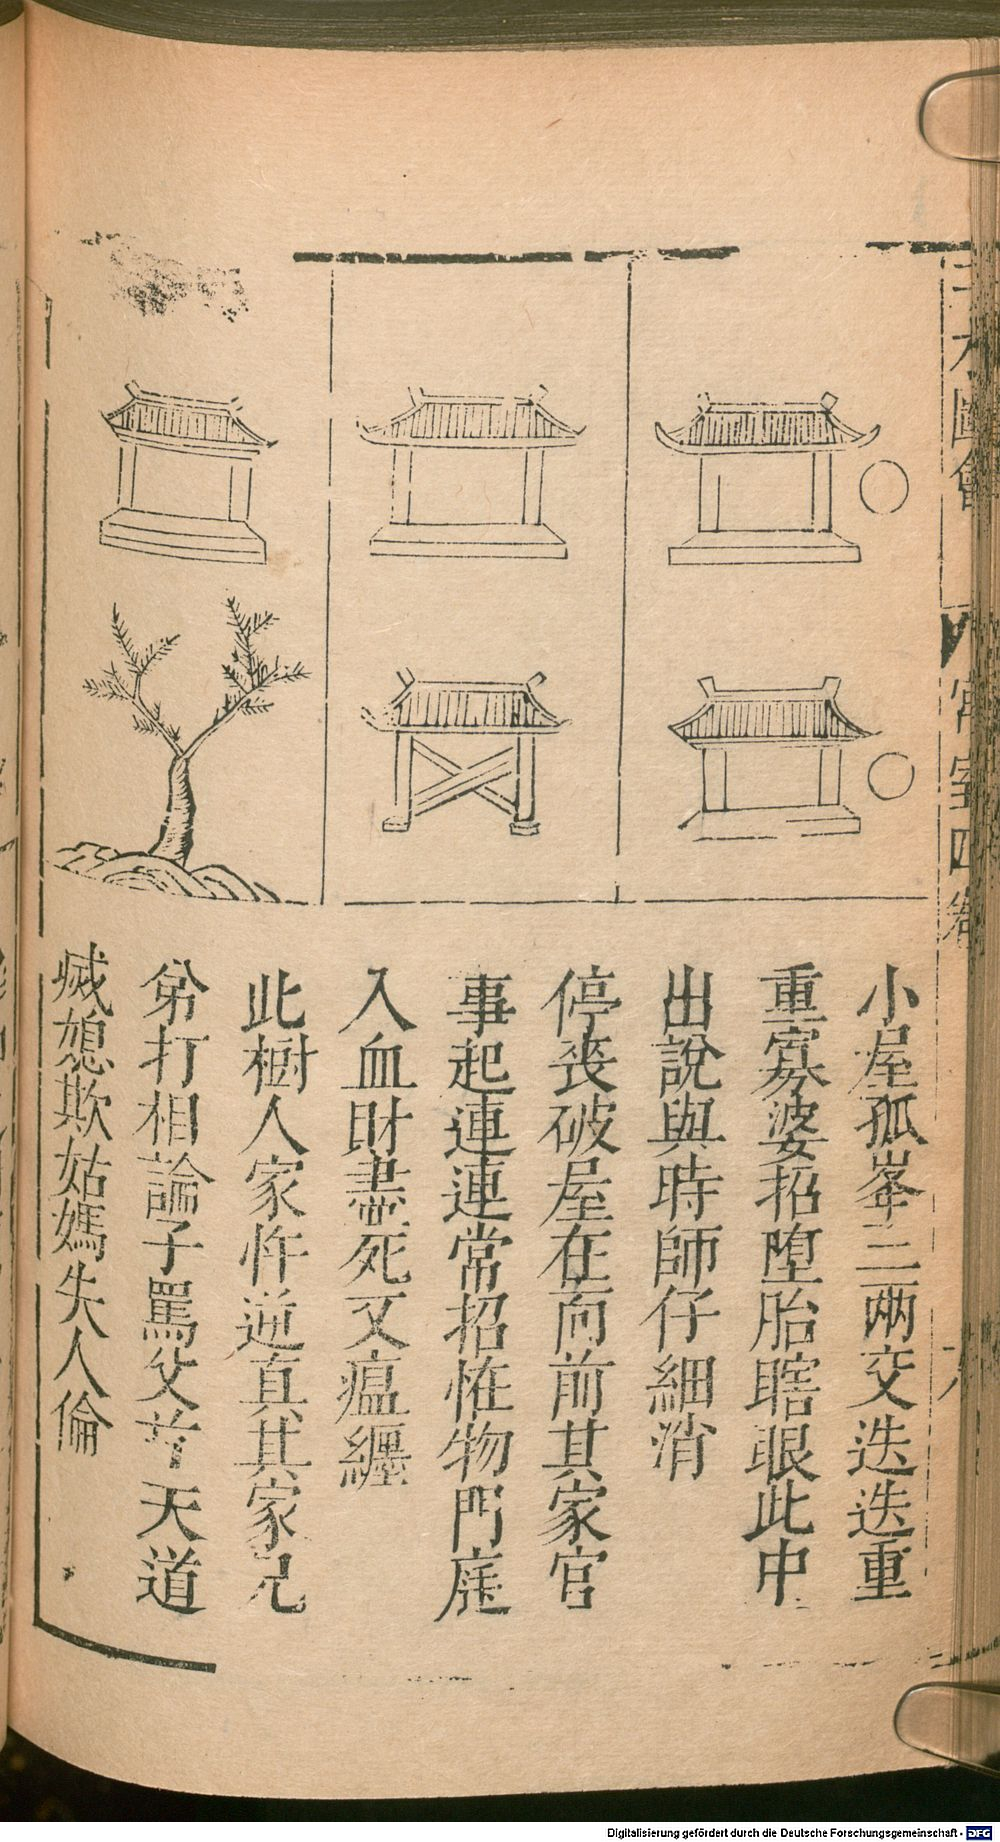 三才圖會
宮室四卷
小屋孤峯三兩交迭迭重
重寡婆招堕胎瞎眼此中
出說與時師仔細消
停丧破屋在面前其家官
事起連連常招恠物門庭
入血財盡死又瘟纏
此樹人家忤逆真其家兄
弟打相論子罵父 天道
滅媳欺姑嫣失人倫
Digitalisierung gefördert durch die Deutsche Forschungsgemeinschaft - DFG